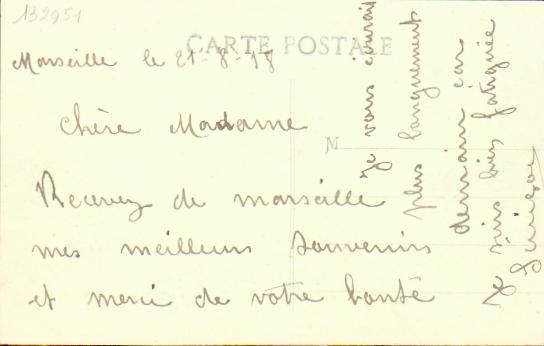 132951
CARTE POSTALE
Marseille le 21-8-18
Chère Madame
M
Recevez de marseille
mes meilleurs souvenirs
et merci de votre bonté
Je vous écrirai
plus longuement
demain car
Je suis bien fatiguée